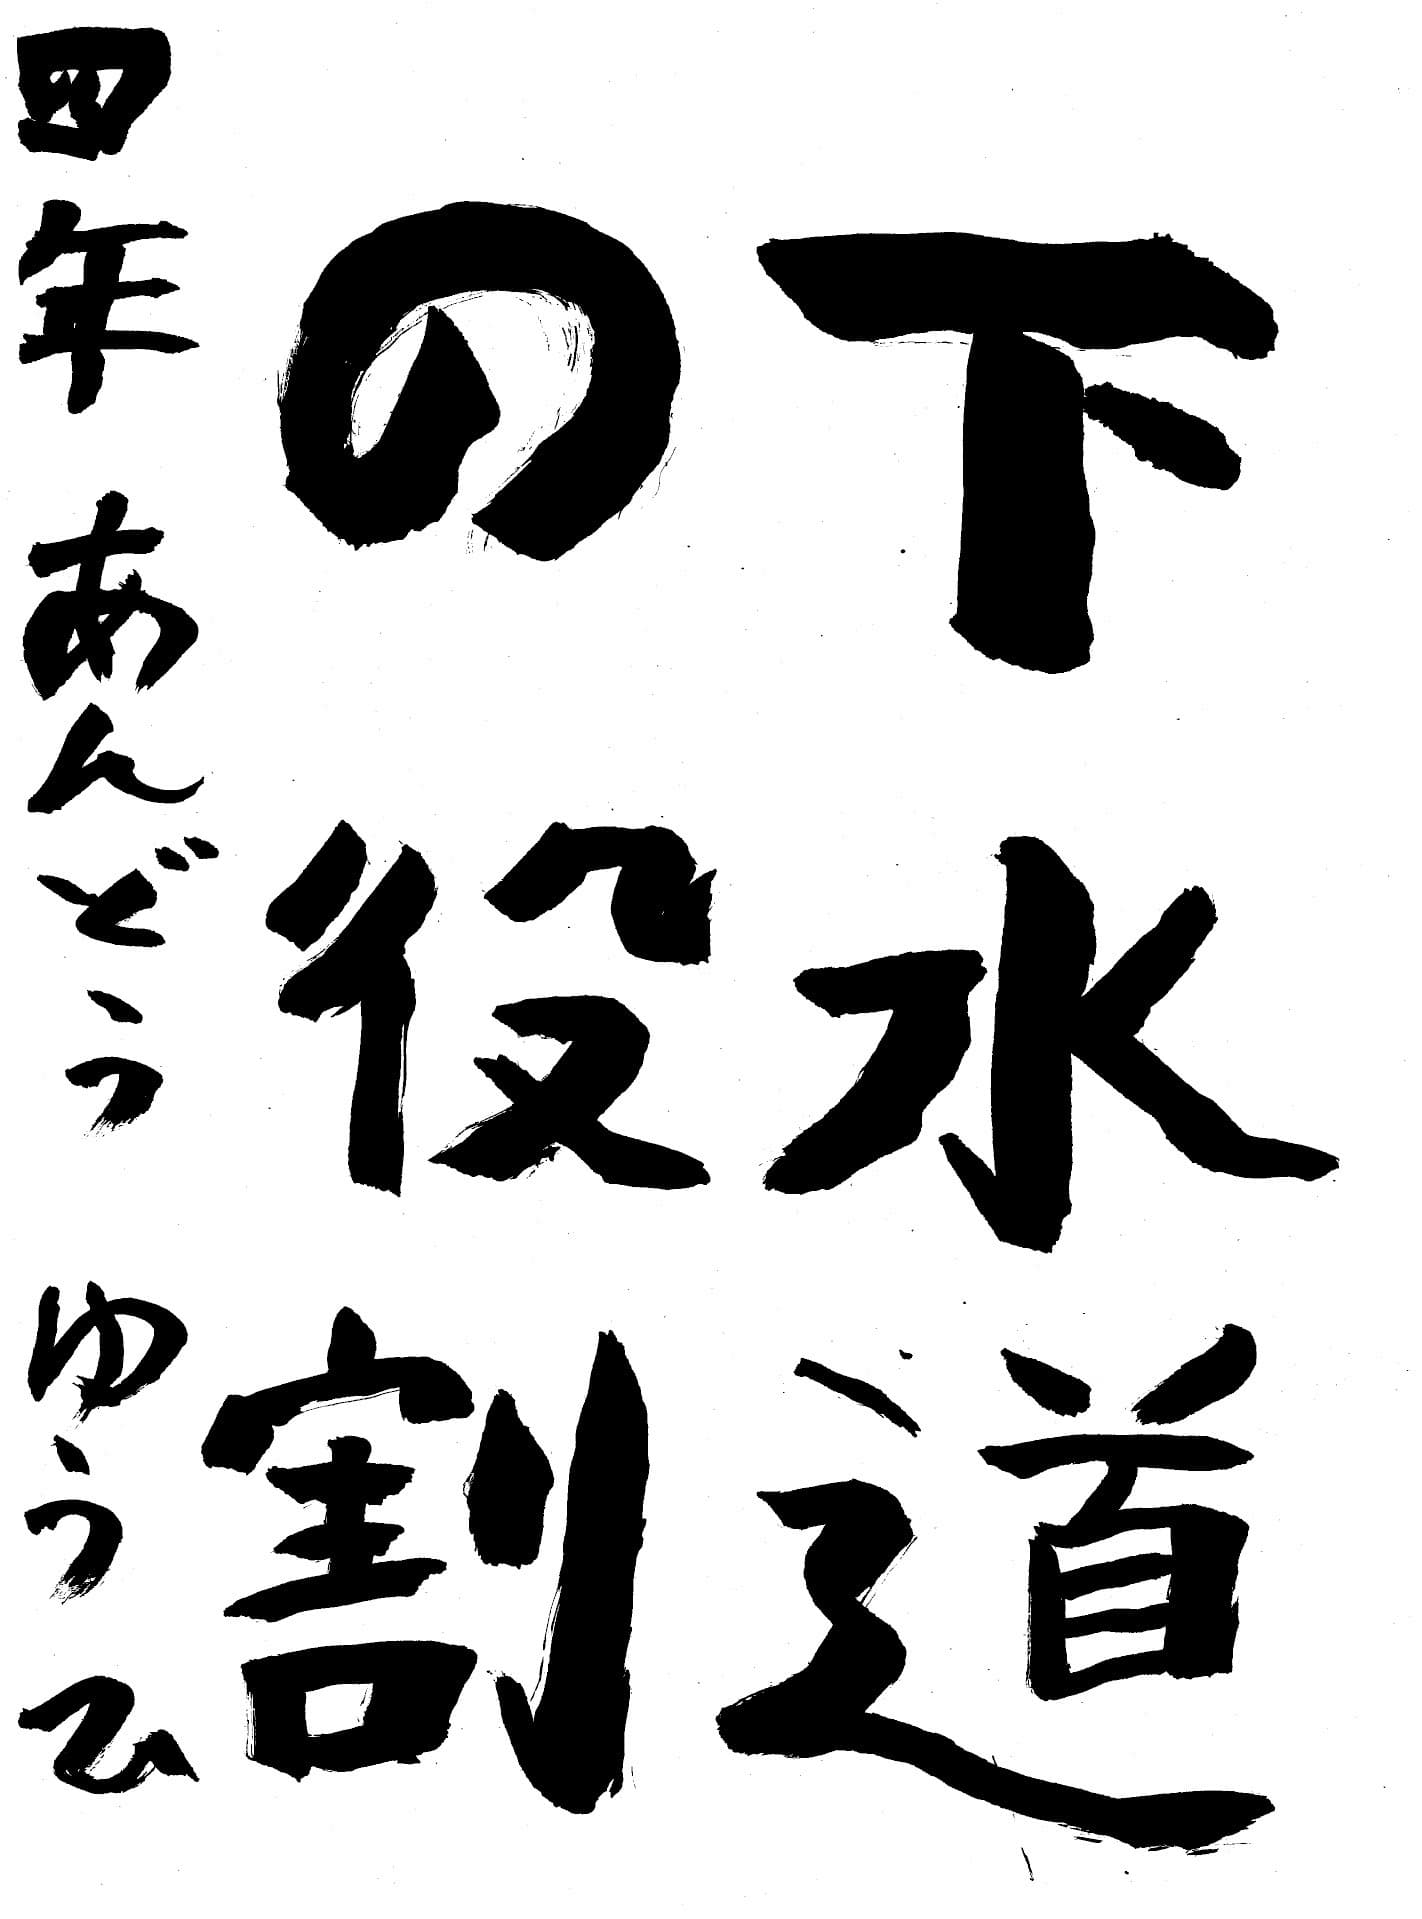 下水道
の役割
四年 あんどう ゆうひ